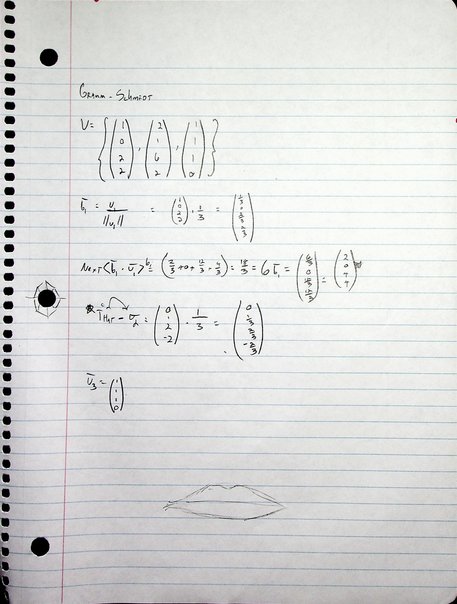 GRAMM - SCHMIDT
U = { (1 0 2 2), (2 1 6 2), (1 1 1 0) }
b̄₁ = u₁/||u₁|| = (1 0 2 2) · 1/3 = (1/3 0 2/3 2/3)
NEXT <b̄₁ · ū₂> b₁ = (2/3 + 0 + 12/3 + 4/3) = 18/3 = 6 b̄₁ = (6/3 0 12/3 12/3) = (2 0 4 4)
THAT - ū₂ = (0 1 2 -2) · 1/3 = (0 1/3 2/3 -2/3)
ū₃ = (1 1 1 0)